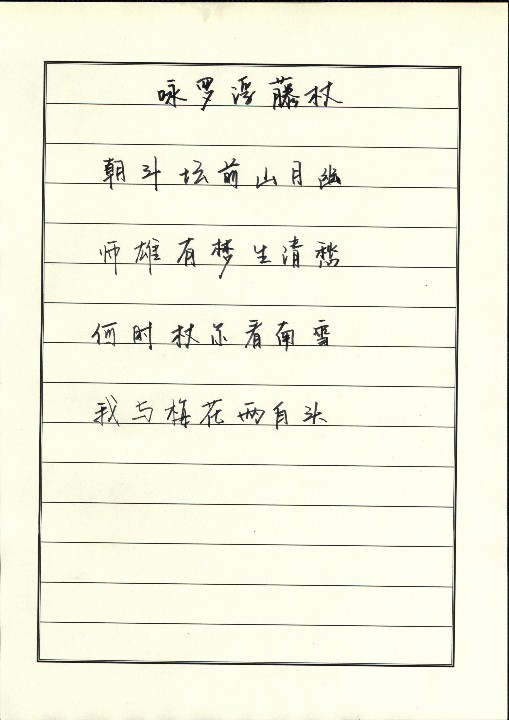 咏罗浮藤杖
朝斗坛前山月幽
师雄有梦生清愁
何时杖尔看南雪
我与梅花两白头